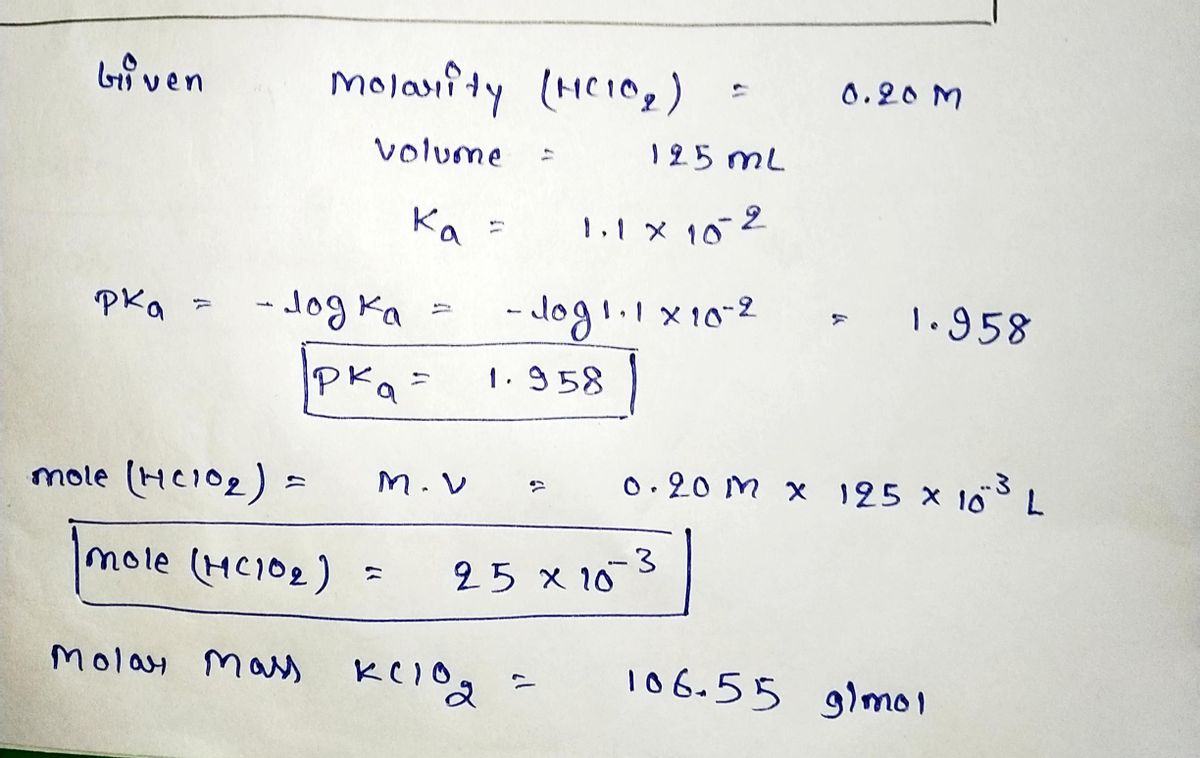 Given Molarity (HClO₂) = 0.20 M
Volume = 125 mL
Ka = 1.1 × 10⁻²
PKa = - log Ka = - log 1.1 × 10⁻² = 1.958
PKa = 1.958
mole (HClO₂) = M.V = 0.20 M × 125 × 10⁻³ L
mole (HClO₂) = 25 × 10⁻³
Molar Mass KClO₂ = 106.55 g/mol